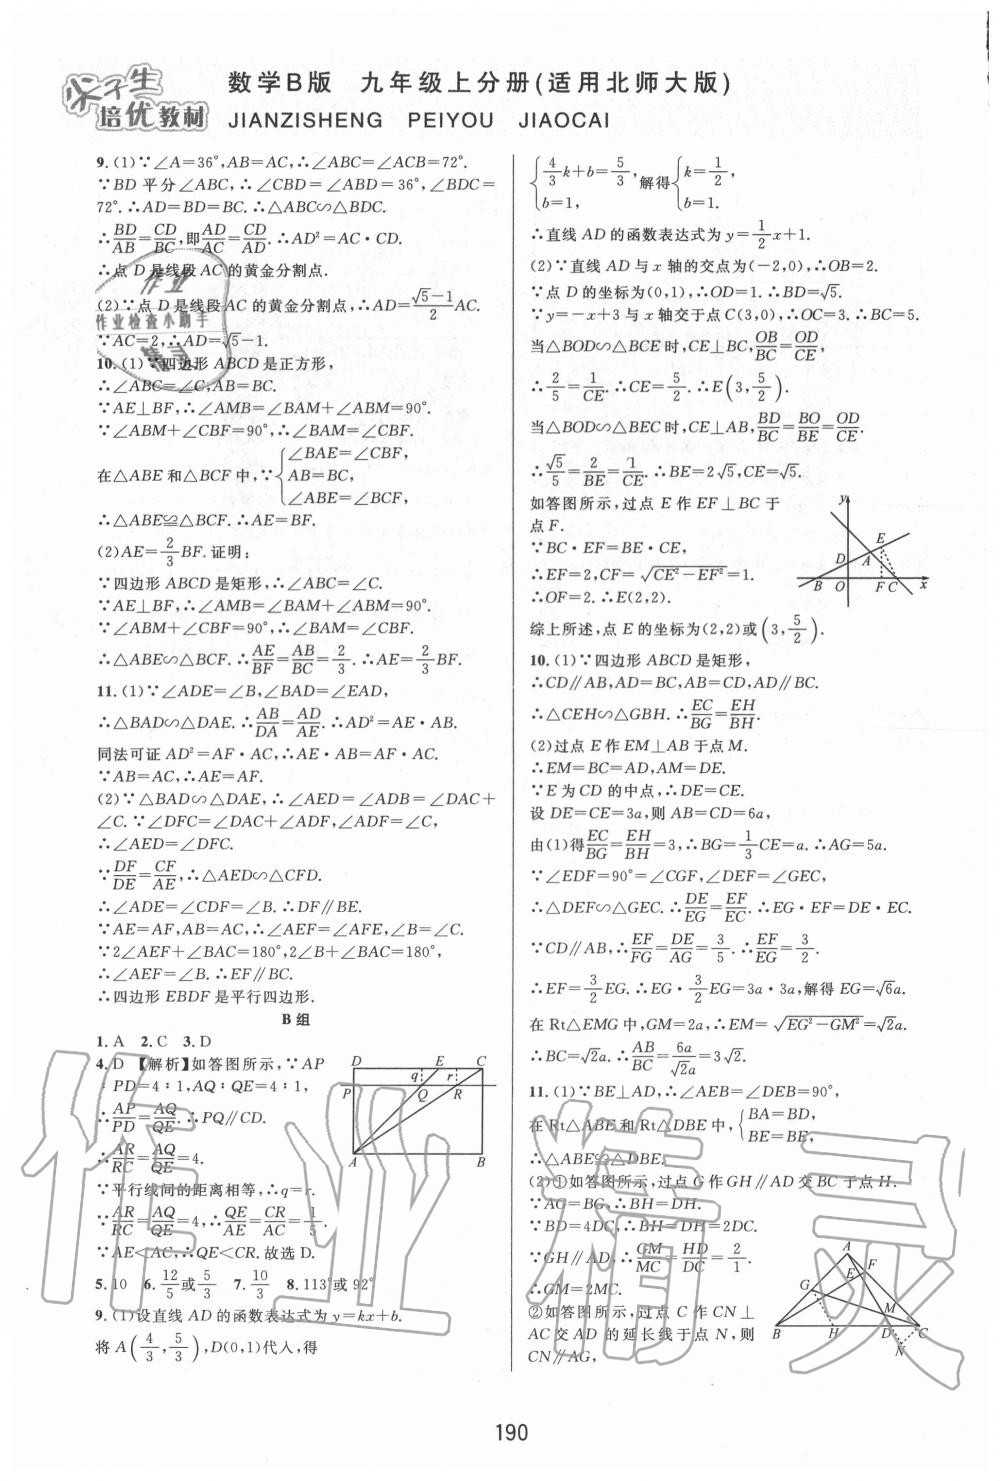 尖子生
培优教材
数学B版 九年级上分册(适用北师大版)
JIANZISHENG PEIYOU JIAOCAI
9.(1)∵∠A=36°,AB=AC,∴∠ABC=∠ACB=72°.
∵BD 平分∠ABC,∴∠CBD=∠ABD=36°,∠BDC=
72°.∴AD=BD=BC.∴△ABC∽△BDC.
∴BD/AB=CD/BC,即AD/AC=CD/AD.∴AD²=AC·CD.
∴点 D 是线段 AC 的黄金分割点.
(2)∵点 D 是线段 AC 的黄金分割点,∴AD=(√5-1)/2 AC.
∵AC=2,∴AD=√5-1.
10.(1)∵四边形 ABCD 是正方形,
∴∠ABC=∠C,AB=BC.
∵AE⊥BF,∴∠AMB=∠BAM+∠ABM=90°.
∵∠ABM+∠CBF=90°,∴∠BAM=∠CBF.
在△ABE 和△BCF 中,∵{∠BAE=∠CBF,
AB=BC,
∠ABE=∠BCF,
∴△ABE≌△BCF.∴AE=BF.
(2)AE=2/3 BF.证明:
∵四边形 ABCD 是矩形,∴∠ABC=∠C.
∵AE⊥BF,∴∠AMB=∠BAM+∠ABM=90°.
∵∠ABM+∠CBF=90°,∴∠BAM=∠CBF.
∴△ABE∽△BCF.∴AE/BF=AB/BC=2/3.∴AE=2/3 BF.
11.(1)∵∠ADE=∠B,∠BAD=∠EAD,
∴△BAD∽△DAE.∴AB/DA=AD/AE.∴AD²=AE·AB.
同法可证 AD²=AF·AC,∴AE·AB=AF·AC.
∵AB=AC,∴AE=AF.
(2)∵△BAD∽△DAE,∴∠AED=∠ADB=∠DAC+
∠C.∵∠DFC=∠DAC+∠ADF,∠ADF=∠C,
∴∠AED=∠DFC.
∵DF/DE=CF/AE,∴△AED∽△CFD.
∴∠ADE=∠CDF=∠B.∴DF∥BE.
∵AE=AF,AB=AC,∴∠AEF=∠AFE,∠B=∠C.
∵2∠AEF+∠BAC=180°,2∠B+∠BAC=180°,
∴∠AEF=∠B.∴EF∥BC.
∴四边形 EBDF 是平行四边形.
B 组
1.A 2.C 3.D
4.D 【解析】如答图所示,∵AP
:PD=4:1,AQ:QE=4:1,
∴AP/PD=AQ/QE.∴PQ∥CD.
∴AR/RC=AQ/QE=4.
∵平行线间的距离相等,∴q=r.
∵AR/RC=AQ/QE=4,∴QE/AE=CR/AC=1/5.
∵AE<AC,∴QE<CR.故选 D.
D E C
q r
P Q R
A B
5.10 6.12/5或5/3 7.10/3 8.113°或 92°
9.(1)设直线 AD 的函数表达式为 y=kx+b.
将 A(4/3,5/3),D(0,1)代人,得
{4/3 k+b=5/3, b=1, 解得{k=1/2, b=1.
∴直线 AD 的函数表达式为 y=1/2 x+1.
(2)∵直线 AD 与 x 轴的交点为(-2,0),∴OB=2.
∵点 D 的坐标为(0,1),∴OD=1.∴BD=√5.
∵y=-x+3 与 x 轴交于点 C(3,0),∴OC=3.∴BC=5.
当△BOD∽△BCE 时,CE⊥BC,OB/BC=OD/CE,
∴2/5=1/CE.∴CE=5/2.∴E(3,5/2).
当△BOD∽△BEC 时,CE⊥AB,BD/BC=BO/BE=OD/CE.
∴√5/5=2/BE=1/CE.∴BE=2√5,CE=√5.
如答图所示,过点 E 作 EF⊥BC 于
点 F.
∵BC·EF=BE·CE,
∴EF=2,CF=√(CE²-EF²)=1.
∴OF=2.∴E(2,2).
y
E
D A
B O F C x
综上所述,点 E 的坐标为(2,2)或(3,5/2).
10.(1)∵四边形 ABCD 是矩形,
∴CD∥AB,AD=BC,AB=CD,AD∥BC.
∴△CEH∽△GBH.∴EC/BG=EH/BH.
(2)过点 E 作 EM⊥AB 于点 M.
∴EM=BC=AD,AM=DE.
∵E 为 CD 的中点,∴DE=CE.
设 DE=CE=3a,则 AB=CD=6a,
由(1)得EC/BG=EH/BH=3,∴BG=1/3 CE=a.∴AG=5a.
∵∠EDF=90°=∠CGF,∠DEF=∠GEC,
∴△DEF∽△GEC.∴DE/EG=EF/EC.∴EG·EF=DE·EC.
∵CD∥AB,∴EF/FG=DE/AG=3/5.∴EF/EG=3/2.
∴EF=3/2 EG.∴EG·3/2 EG=3a·3a,解得 EG=√6a.
在 Rt△EMG 中,GM=2a,∴EM=√(EG²-GM²)=√2a.
∴BC=√2a.∴AB/BC=6a/√2a=3√2.
11.(1)∵BE⊥AD,∴∠AEB=∠DEB=90°,
在 Rt△ABE 和 Rt△DBE 中,{BA=BD, BE=BE,
∴△ABE≌△DBE.
(2)①如答图所示,过点 G 作 GH∥AD 交 BC 于点 H.
∵AG=BG,∴BH=DH.
∵BD=4DC,∴BH=DH=2DC.
∵GH∥AD,∴GM/MC=HD/DC=2/1.
∴GM=2MC.
②如答图所示,过点 C 作 CN⊥
AC 交 AD 的延长线于点 N,则
CN∥AG,
A
E F
G
M
B H D C
N
作业
作业检查小助手
作业精灵
190